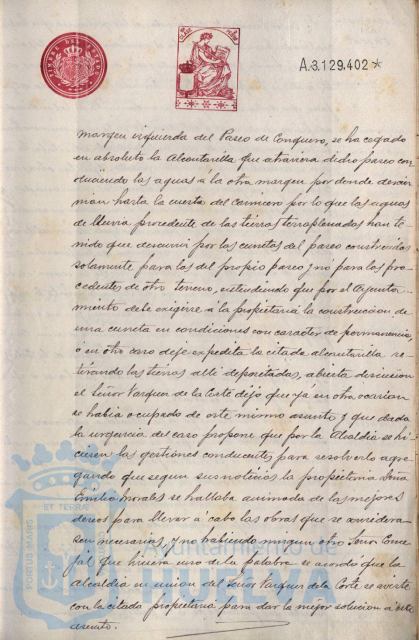 A.3.129.402*
margen izquierda del Paseo de Conquero, se ha cegado
en absoluto la alcantarilla que atraviesa dicho paseo con
duciendo las aguas á la otra margen por donde derra
maban hasta la cuesta del Carnicero por lo que las aguas
de lluvia procedente de las tierras terraplenadas han te-
nido que discurrir por las cunetas del paseo construidas
solamente para las del propio paseo y no para las pro-
cedentes de otro terreno, entendiendo que por el Ayunta-
miento debe exigirse á la propietaria la construccion de
una cuneta en condiciones con caracter de permanencia,
ó en otro caso deje expedita la citada alcantarilla re-
tirando las tierras alli depositadas, abierta discusion
el Señor Vazquez de la Corte dijo que yá en otra ocasion
se habia ocupado de este mismo asunto y que dada
la urgencia del caso propone que por la Alcaldia se hi-
ciesen las gestiones conducentes para resolverlo agre-
gando que segun sus noticias la propietaria Doña
Emilia Morales se hallaba animada de los mejores
deseos para llevar á cabo las obras que se consideran
sean necesarias, y no habiendo ningun otro Señor Conce-
jal que hiciera uso de la palabra se acordo que la
Alcaldia en union del Señor Vazquez de la Corte se aviste
con la citada propietaria para dar la mejor solucion á este
asunto.
PORTUS MARIS
ET TERRÆ
Ayuntamiento de
HUELVA